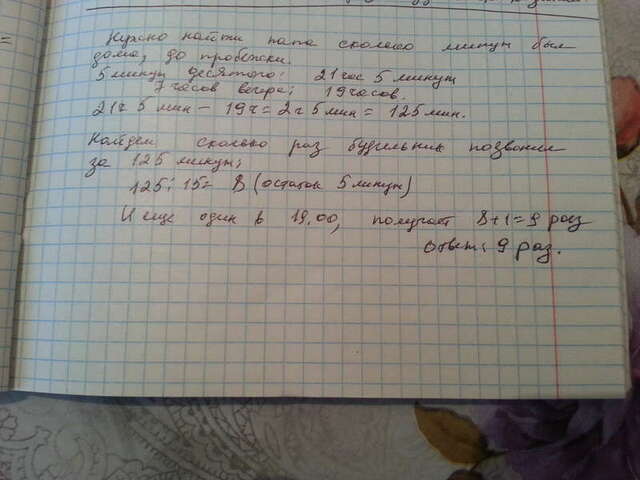 Нужно найти папа сколько минут был
дома, до пробежки.
5 минут десятого: 21 час 5 минут
7 часов вечера; 19 часов.
21ч 5 мин - 19ч = 2ч 5 мин = 125 мин.
Найдем сколько раз будильник позвонил
за 125 минут;
125 : 15 = 8 (остаток 5 минут)
И еще один в 19.00, получает 8+1=9 раз
Ответ: 9 раз.